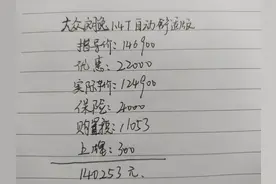 大众朗逸1.4T自动舒适版
指导价：146900
优惠：22000
实际价：124900
保险：4000
购置税：11053
上牌：300
140253元.